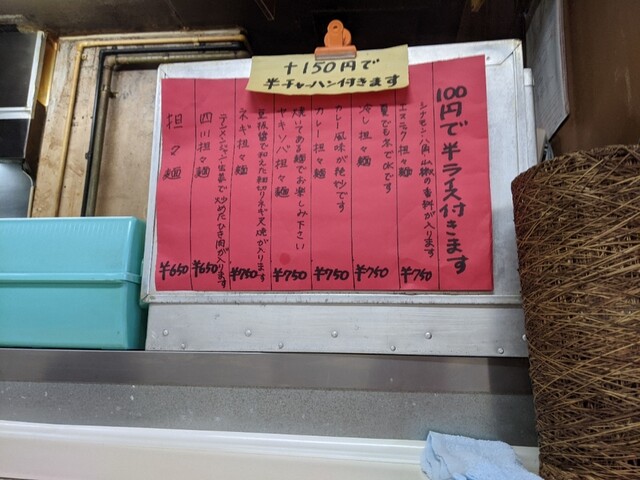 +150円で
半チャーハン付きます
100円で半ライス付きます
シナモン・八角・山椒の香料が入ります
エスニック担々麺 ¥750
夏でも冬でもOKです
冷し担々麺 ¥750
カレー風味が絶妙です
カレー担々麺 ¥750
焼いてある麺でお楽しみ下さい
ヤキソバ担々麺 ¥750
豆板醤で和えた細切りネギと叉焼が入ります
ネギ担々麺 ¥750
テンメンジャン仕立で炒めたひき肉が入ります
四川担々麺 ¥650
担々麺 ¥650